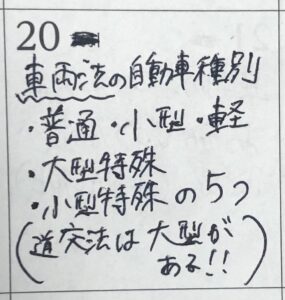 20
車両法の自動車種別
・普通・小型・軽
・大型特殊
・小型特殊の5つ
(道交法は大型が
ある!!)